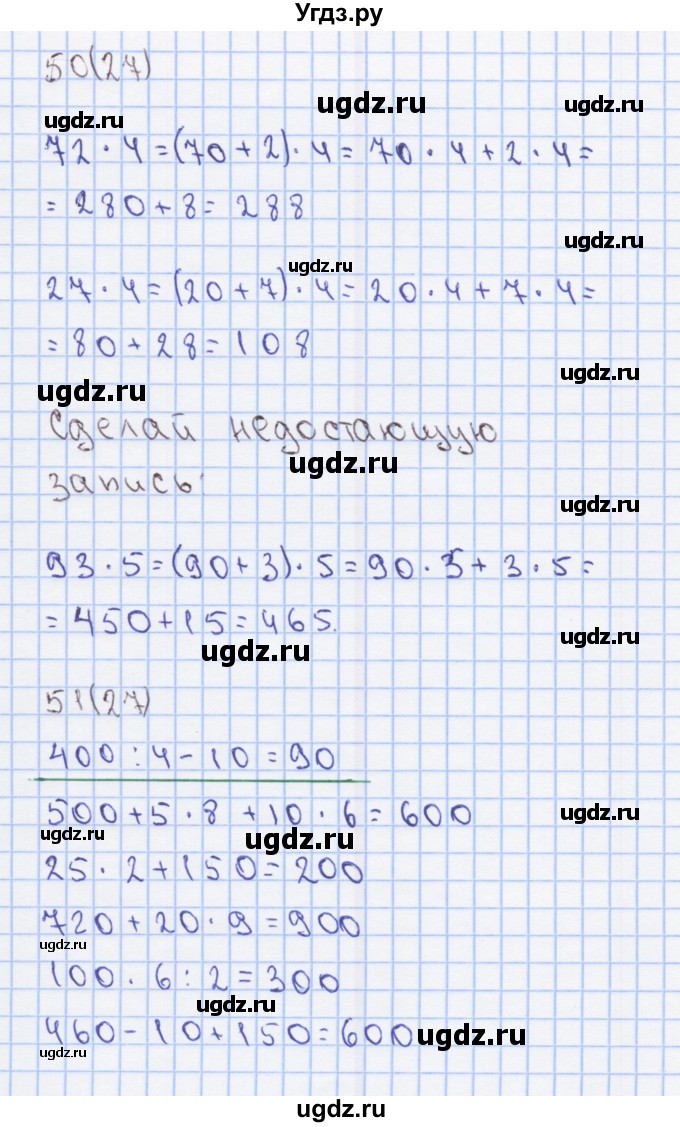 Угдз.ру
50(27)
ugdz.ru
ugdz.ru
ugdz.ru
72 · 4 = (70 + 2) · 4 = 70 · 4 + 2 · 4 =
= 280 + 8 = 288
ugdz.ru
ugdz.ru
27 · 4 = (20 + 7) · 4 = 20 · 4 + 7 · 4 =
= 80 + 28 = 108
ugdz.ru
ugdz.ru
Сделай недостающую
ugdz.ru
запись:
ugdz.ru
93 · 5 = (90 + 3) · 5 = 90 · 5 + 3 · 5 =
= 450 + 15 = 465.
ugdz.ru
ugdz.ru
51(27)
400 : 4 - 10 = 90
500 + 5 · 8 + 10 · 6 = 600
ugdz.ru
ugdz.ru
ugdz.ru
25 · 2 + 150 = 200
720 + 20 · 9 = 900
ugdz.ru
100 · 6 : 2 = 300
ugdz.ru
460 - 10 + 150 = 600
ugdz.ru
ugdz.ru
ugdz.ru